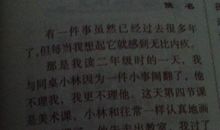 有一件事虽然已经过去很多年
了，但每当我想起它就感到无比内疚。
那是我读二年级时的一天，我
与同桌小林因为一件小事闹翻了，他
不理我，我更不理他。这天第四节课
是美术课，小林和往常一样认真地画